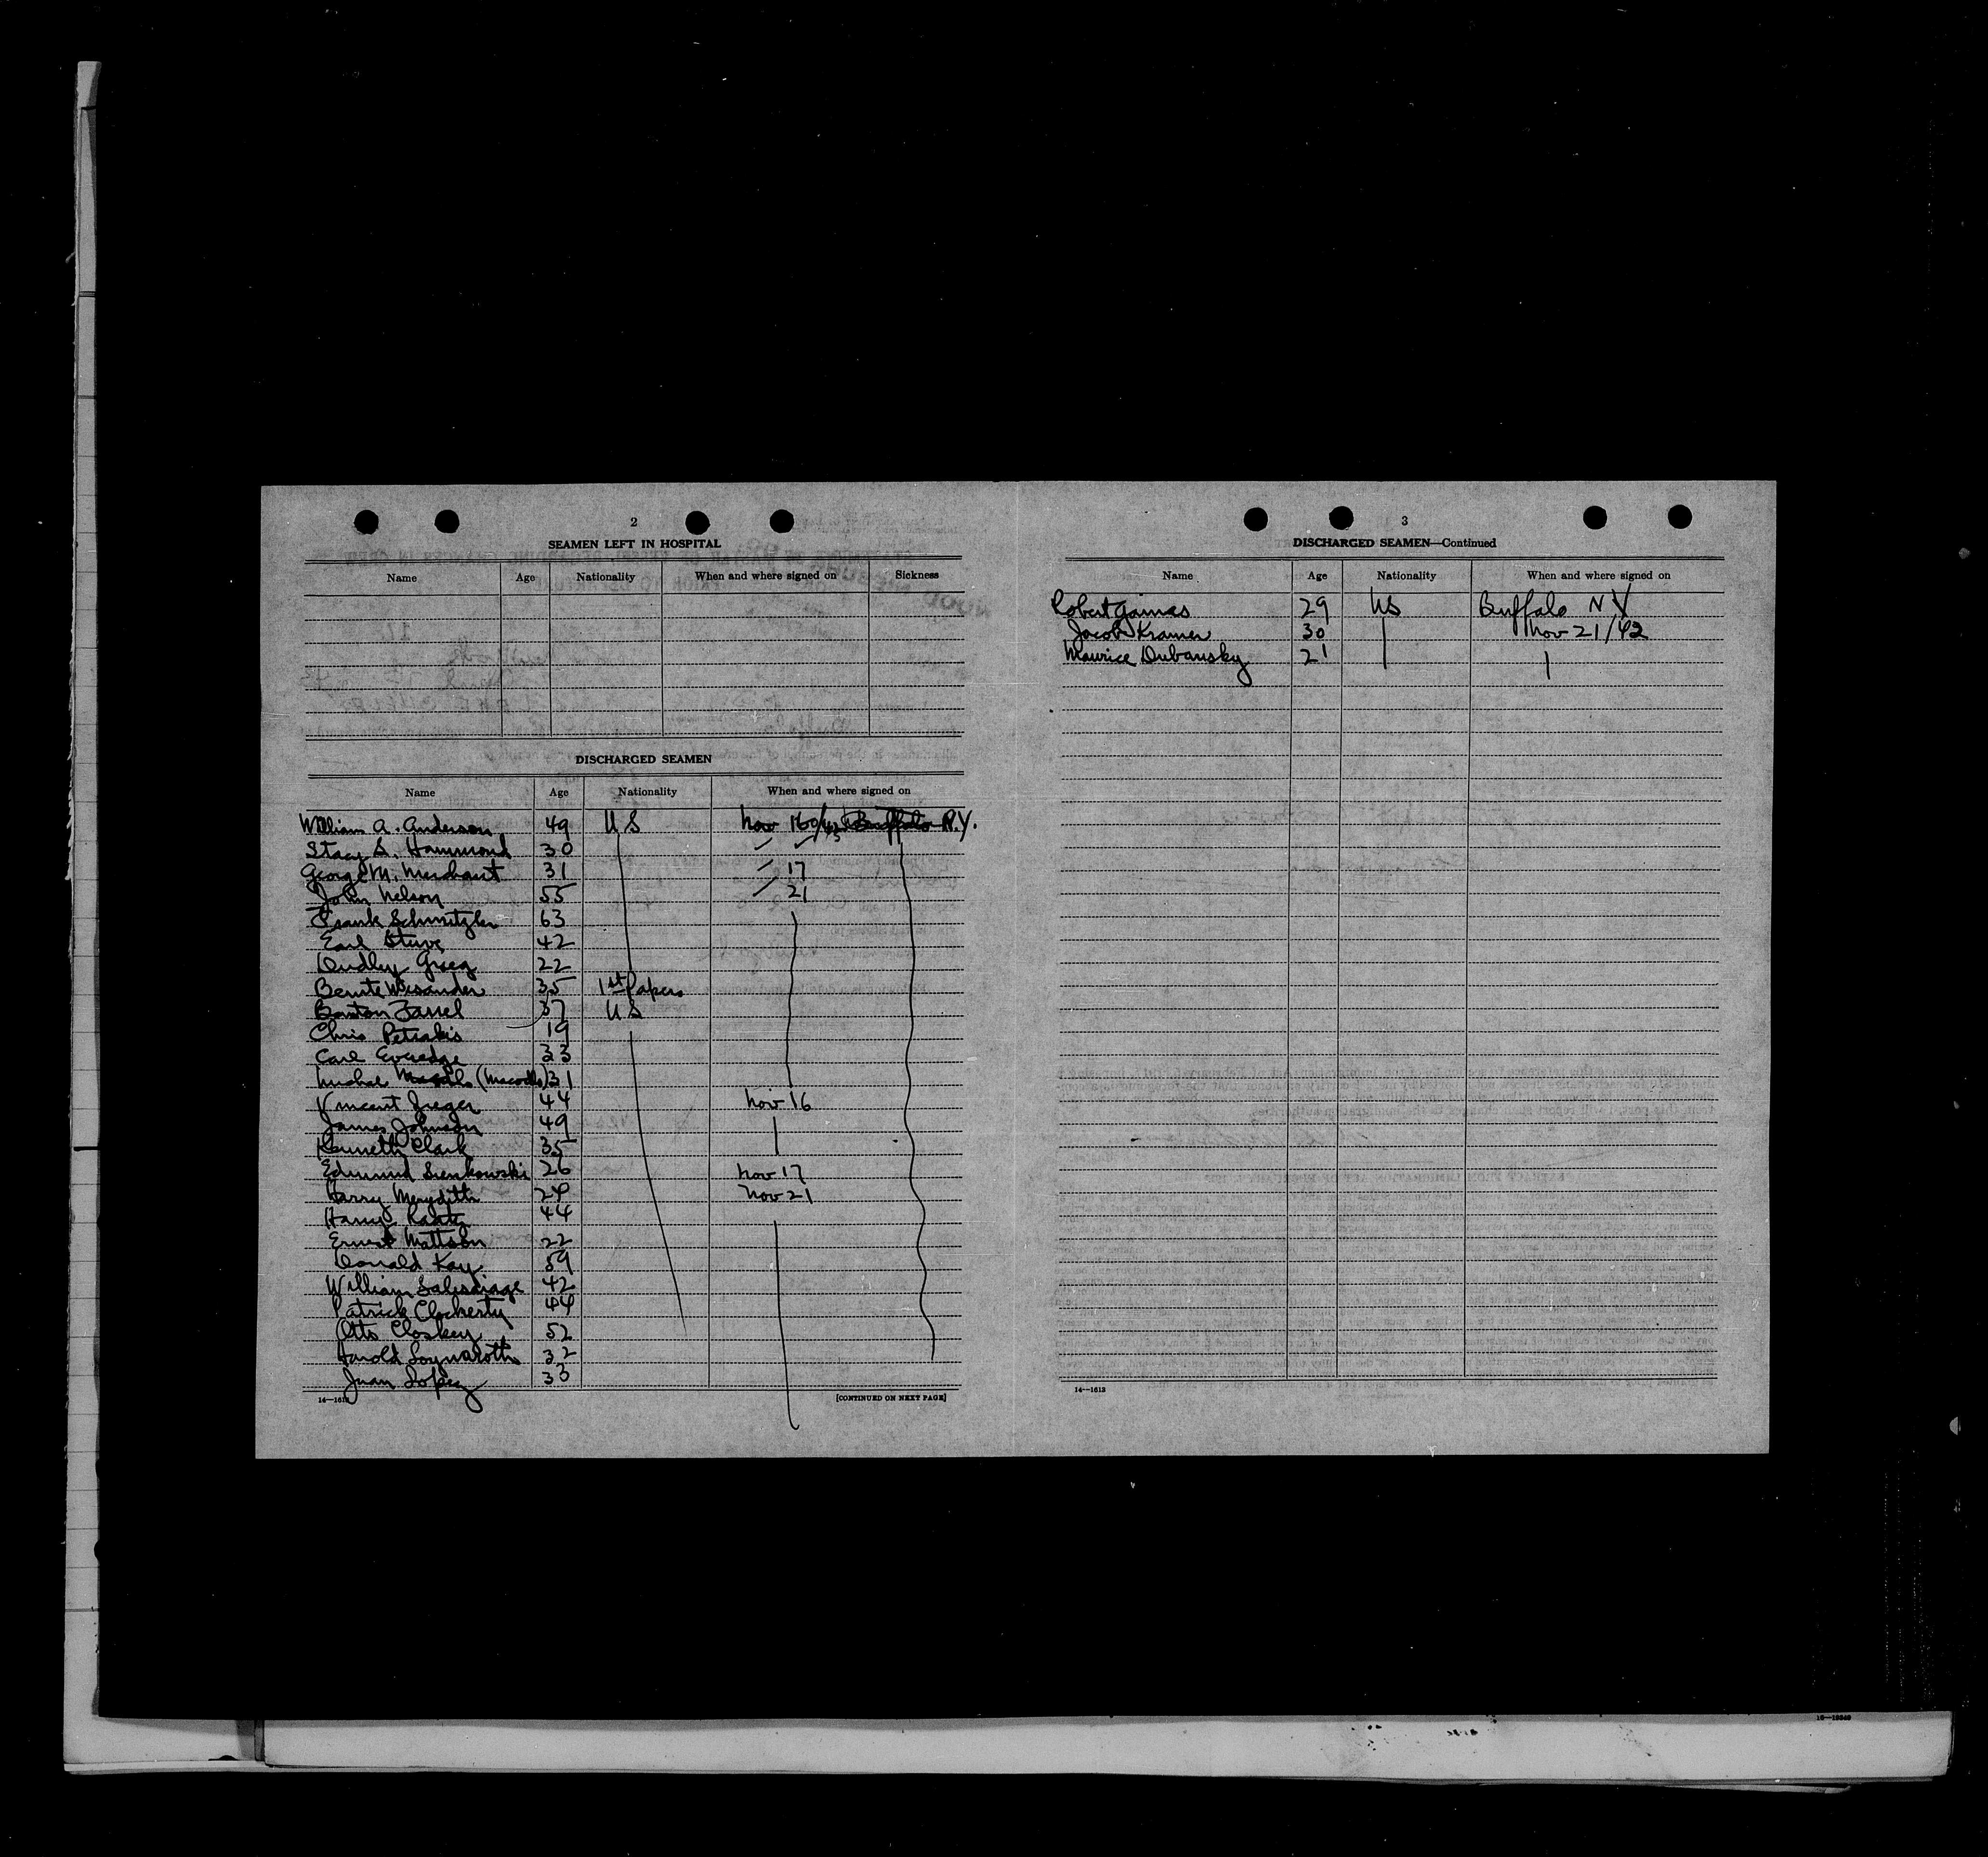 2
SEAMEN LEFT IN HOSPITAL
Name Age Nationality When and where signed on Sickness
DISCHARGED SEAMEN
Name Age Nationality When and where signed on
William A. Anderson 49 US Nov 16 Buffalo N.Y.
Stacy S. Hammond 30
George M. Merchant 31 17
John Nelson 55 21
Frank Schmitzler 63
Earl Stuve 42
Dudley Grieg 22
35 1st Papers
Farrel 37 US
Chris Petrakis 19
Carl Everedge 33
31
Vincent 44 Nov 16
James Johnson 49
Kenneth Clark 35
Edmund Sienkowski 26 Nov 17
Harry Meredith 24 Nov 21
Harry 44
Ernest Mattson 22
Donald Kay 59
William 42
Patrick Clocherty 44
Otto Closkey 52
Harold 32
Juan Lopez 33
14—1613
[CONTINUED ON NEXT PAGE]
3
DISCHARGED SEAMEN—Continued
Name Age Nationality When and where signed on
Robert Gaines 29 US Buffalo NY
Jacob Kramer 30 Nov 21/42
Maurice Dubansky 21
14—1613